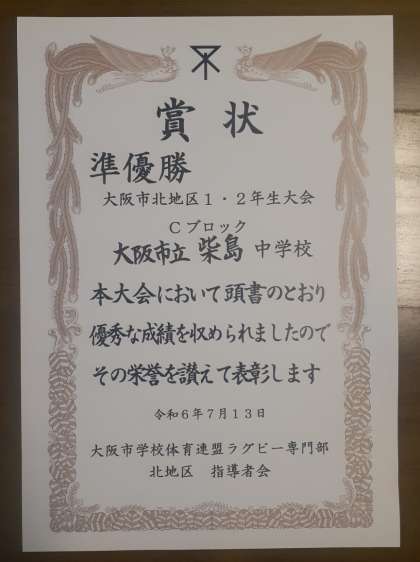 賞状
準優勝
大阪市北地区１・２年生大会
Ｃブロック
大阪市立 柴島 中学校
本大会において頭書のとおり
優秀な成績を収められましたので
その栄誉を讃えて表彰します
令和６年７月１３日
大阪市学校体育連盟ラグビー専門部
北地区 指導者会